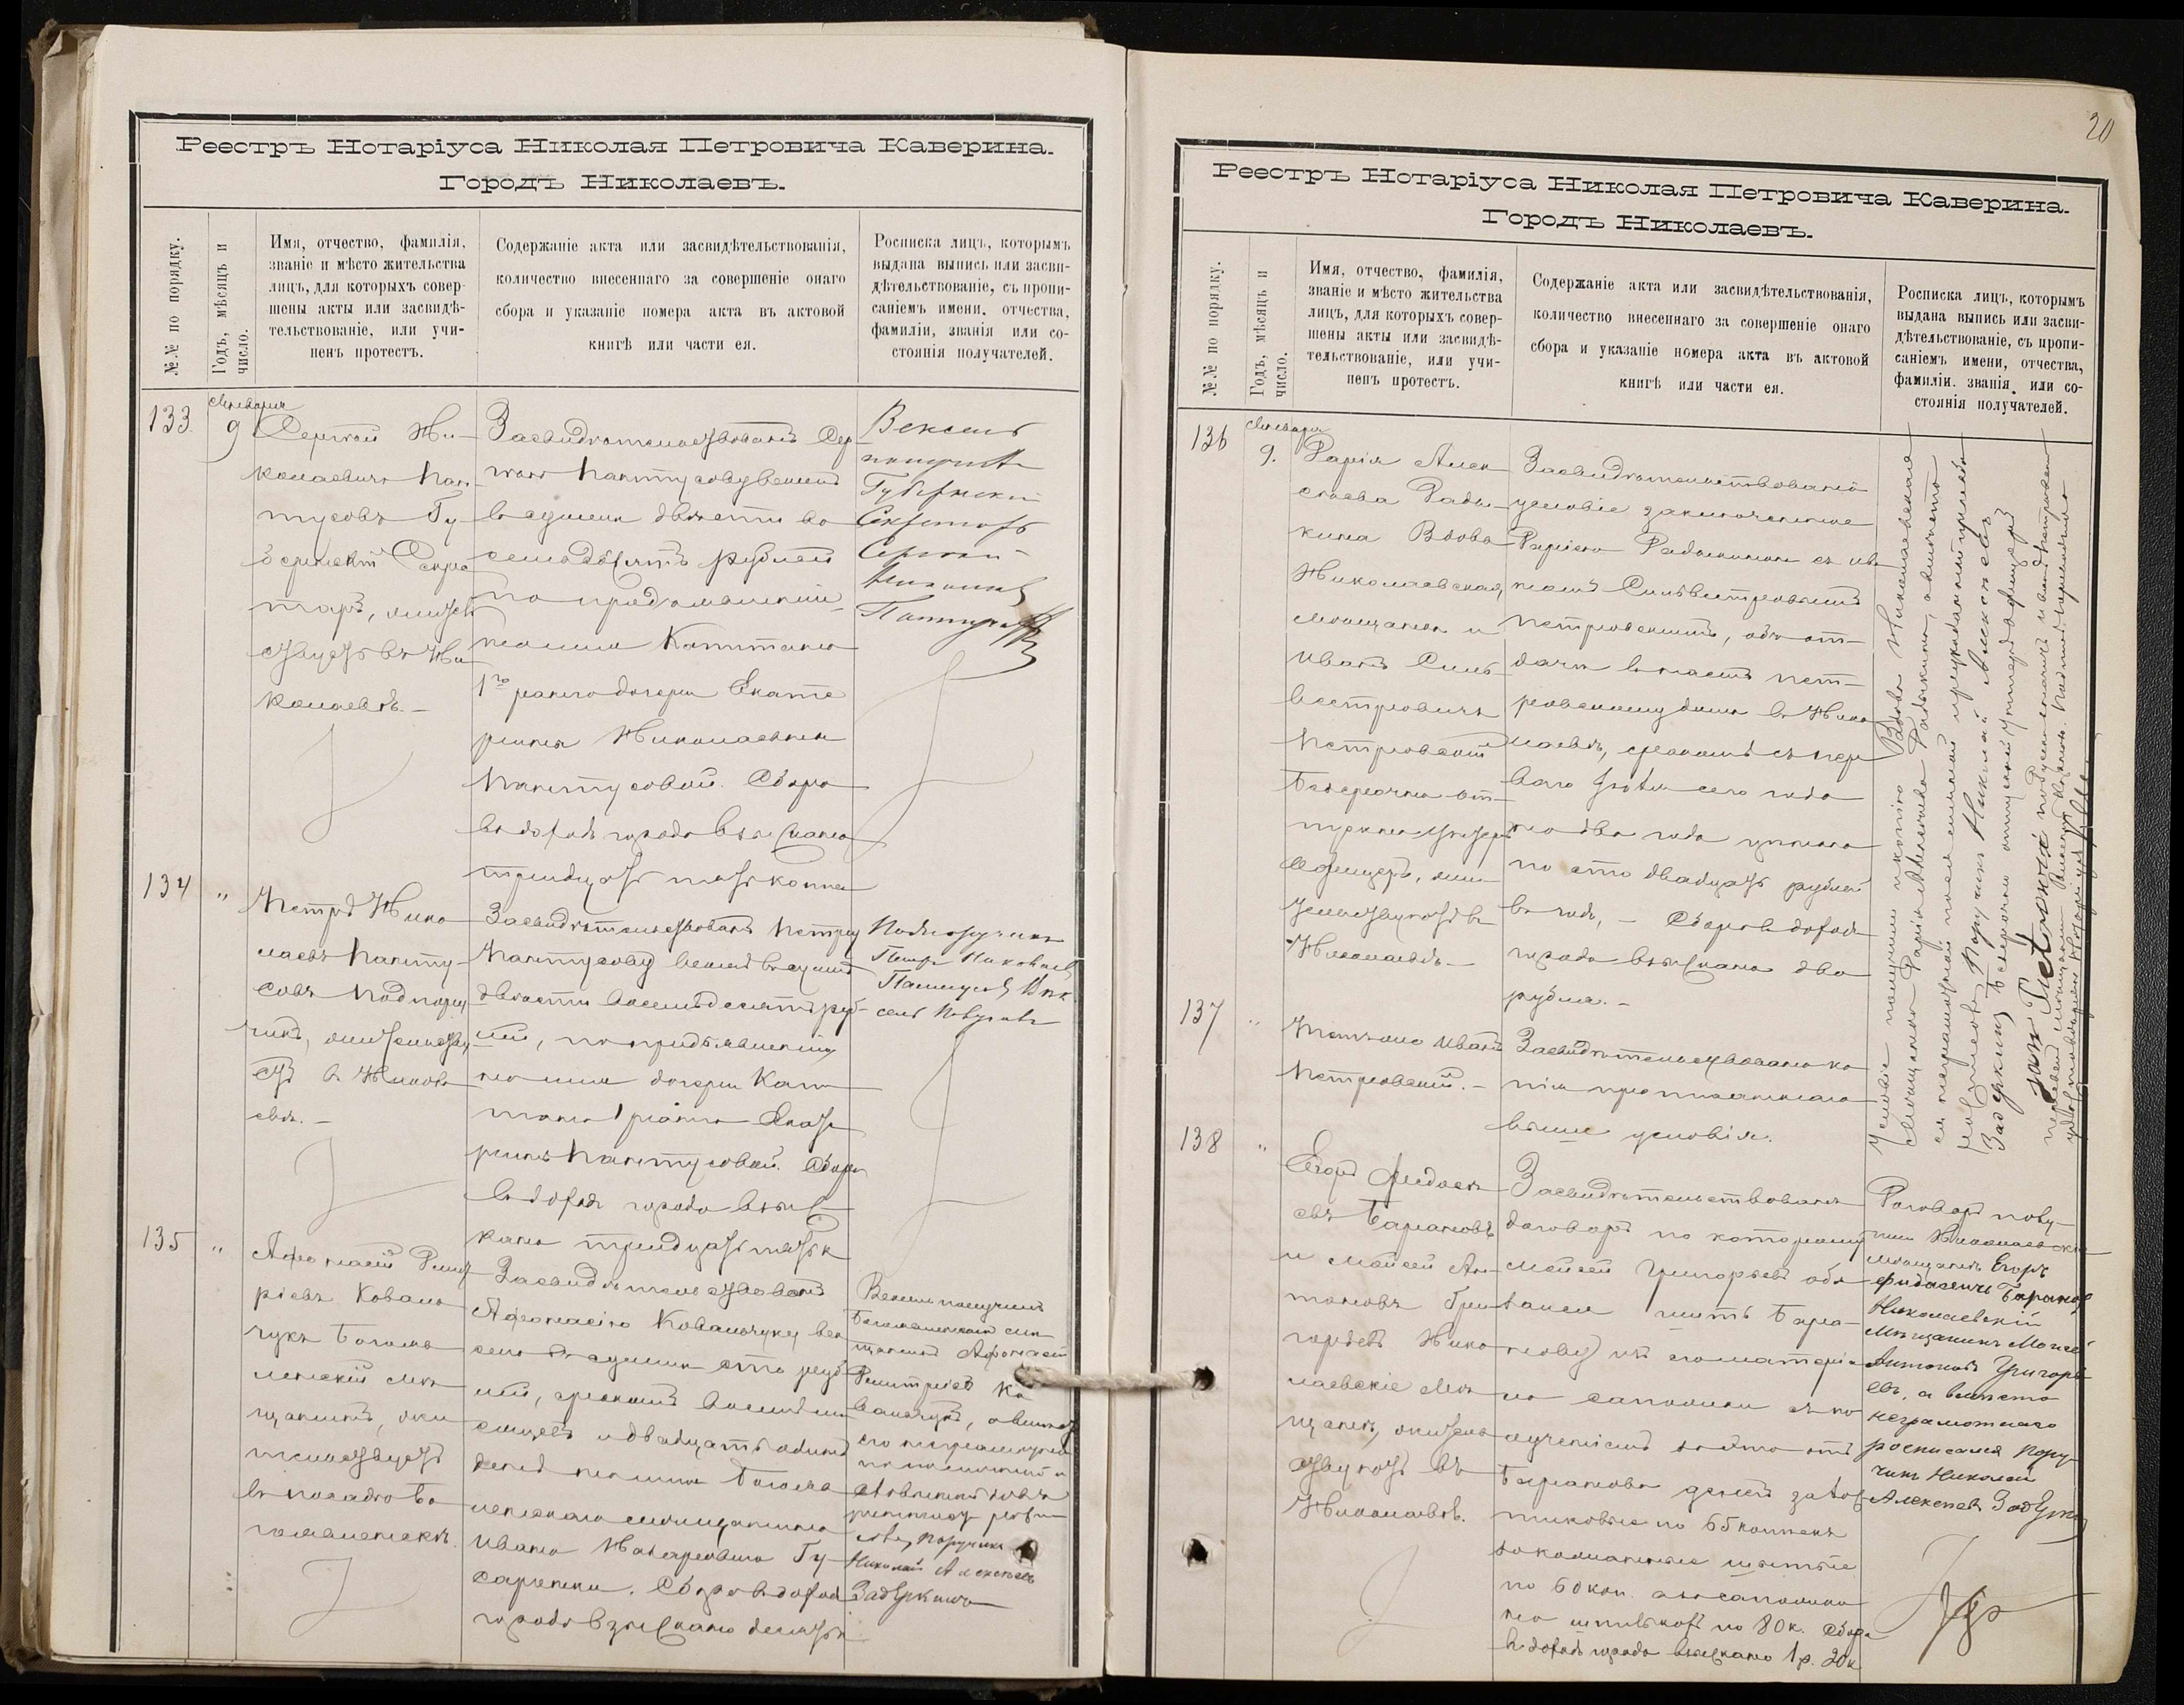 Реестръ Нотаріуса Николая Петровича Каверина.
Городъ Николаевъ.
№№ по порядку.
Годъ, мѣсяцъ и
число.
Имя, отчество, фамилія,
званіе и мѣсто жительства
лицъ, для которыхъ совер-
шены акты или засвидѣ-
тельствованіе, или учи-
ненъ протестъ.
Содержаніе акта или засвидѣтельствованія,
количество внесеннаго за совершеніе онаго
сбора и указаніе номера акта въ актовой
книгѣ или части ея.
Росписка лицъ, которымъ
выдана выпись или засви-
дѣтельствованіе, съ пропи-
саніемъ имени, отчества,
фамиліи, званія или со-
стоянія получателей.
133.
Января
9
Сергѣй Ни-
колаевичъ Пан-
тусовъ Гу-
бернскій Секре
тарь, житель
ствуетъ въ Ни-
колаевѣ.-
Засвидѣтельствованъ Сер
гѣю Пантусову вексель
въ суммѣ двѣсти во
семьдесятъ рублей
по предъявленіи
на имя Капитана
1го ранга дочери Екате
рины Николаевны
Пантусовой. Сбора
въ доходъ города взыскано
тридцать пять копѣе
Вексель
получилъ
Губернскій
Секретарь
Сергѣй
Николаевъ
Пантусовъ
134
"
Петръ Нико
лаевъ Панту-
совъ Подпору
чикъ, жительству
етъ въ Никола
евѣ.-
Засвидѣтельствованъ Петру
Пантусову вексель въ суммѣ
двѣсти восемьдесятъ руб-
лей, по предъявленіи
на имя дочери Капи
тана 1 ранга Екате
рины Пантусовой. Сбора
въ доходъ города взыс
кано тридцать пять к
Подпоручикъ
Петръ Николаевъ
Пантусовъ Век
сель Получилъ
135
"
Афонасій Дмит
ріевъ Коваль
чукъ Богояв
ленскій мѣ
щанинъ, жи
тельствуетъ
въ посадѣ Бо
гоявленскѣ.
Засвидѣтельствованъ
Афонасію Ковальчуку век
сель въ суммѣ сто руб
лей, срокомъ восемь мѣ
сяцевъ и двадцать одинъ
день на имя Богояв
ленскаго мѣщанина
Ивана Назаровича Гу-
саренки. Сбора въ доход
города взыскано десять
Вексель получилъ
Богоявленскій мѣ-
щанинъ Афонасій
Дмитріевъ Ко
вальчукъ, а вмѣсто
его неграмотнаго
Поручикъ
Николай Алексѣевъ
Задеркинъ
20
Реестръ Нотаріуса Николая Петровича Каверина.
Городъ Николаевъ.
№№ по порядку.
Годъ, мѣсяцъ и
число.
Имя, отчество, фамилія,
званіе и мѣсто жительства
лицъ, для которыхъ совер-
шены акты или засвидѣ-
тельствованіе, или учи-
ненъ протестъ.
Содержаніе акта или засвидѣтельствованія,
количество внесеннаго за совершеніе онаго
сбора и указаніе номера акта въ актовой
книгѣ или части ея.
Росписка лицъ, которымъ
выдана выпись или засви-
дѣтельствованіе, съ пропи-
саніемъ имени, отчества,
фамиліи. званія или со-
стоянія получателей.
136
Января
9.
Дарія Алек
сѣева Рады-
кина Вдова
Николаевская
мѣщанка и
Иванъ Силь
вестровичъ
Петровскій
Безсрочно от-
пускной унтеръ
Офицеръ, жи
тельствуютъ въ
Николаевѣ.-
Засвидѣтельствовано
условіе заключенное
Даріею Радыкиною съ Ив
номъ Сильвестровымъ
Петровскимъ, объ от-
дачѣ въ наемъ Пет-
ровскому дома въ Нико
лаевѣ, срокомъ съ пер
ваго сего года
на два года цѣною
по сто двадцать рублей
въ годъ, - Сбора въ доход
города взыскано два
рубля.-
Условіе получили копію Вдова Николаевская
мѣщанка Дарія Алексѣева Радыкина, а вмѣсто
ея неграмотной по ея личной
росписался Поручикъ Николай Алексѣевъ
Задеркинъ, Безсрочно отпускной Унтеръ Офицеръ
137
"
Иванъ
Петровскій.-
Засвидѣтельствована ко
пія прописаннаго
выше условія.
138
"
Егоръ Фидосѣ
евъ Барановъ
и Мойсей Ан
тоновъ Гри-
горьевъ Нико
лаевскіе мѣ
щане, житель
ствуютъ въ
Николаевѣ.
Засвидѣтельствованъ
договоръ по которому
Мойсей Григорьевъ обя
занъ шить Бара
нову изъ его матерiа
ла сапоги съ по
лученіемъ за то отъ
Баранова денегъ за
по 65 копѣекъ
шитые
по 60 коп. за сапоги
на шпилькахъ по 80 к. Сбора
въ доходъ города взыскано 1 р. 20 к
Договоръ полу-
чили Николаевскій
мѣщанинъ Егоръ
Фидосѣевъ Барановъ
Николаевскій
Мѣщанинъ Моисей
Антоновъ Григорь
евъ, а вмѣсто
неграмотнаго
росписался Пору-
чикъ Николай
Алексѣевъ Задеркинъ